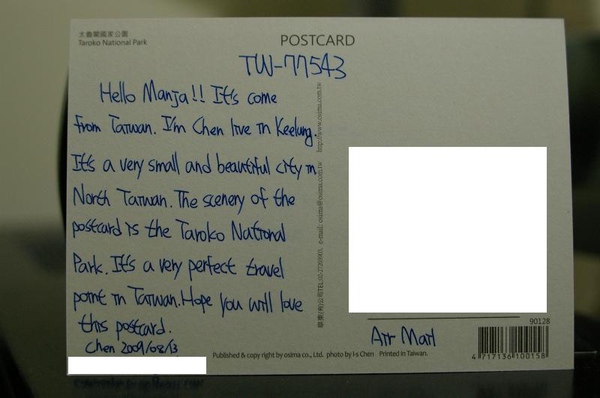 太魯閣國家公園
Taroko National Park
POSTCARD
TW-77543
Hello Manja!! It's come
from Taiwan. I'm Chen live in Keelung.
It's a very small and beautiful city in
North Taiwan. The scenery of the
postcard is the Taroko National
Park. It's a very perfect travel
point in Taiwan. Hope you will love
this postcard.
Chen 2009/08/13
e-mail: osima@osima.com.tw http://www.osima.com.tw
Air Mail
90128
4 717136 100158
Published & copy right by osima co., Ltd. photo by I-s Chen Printed in Taiwan.